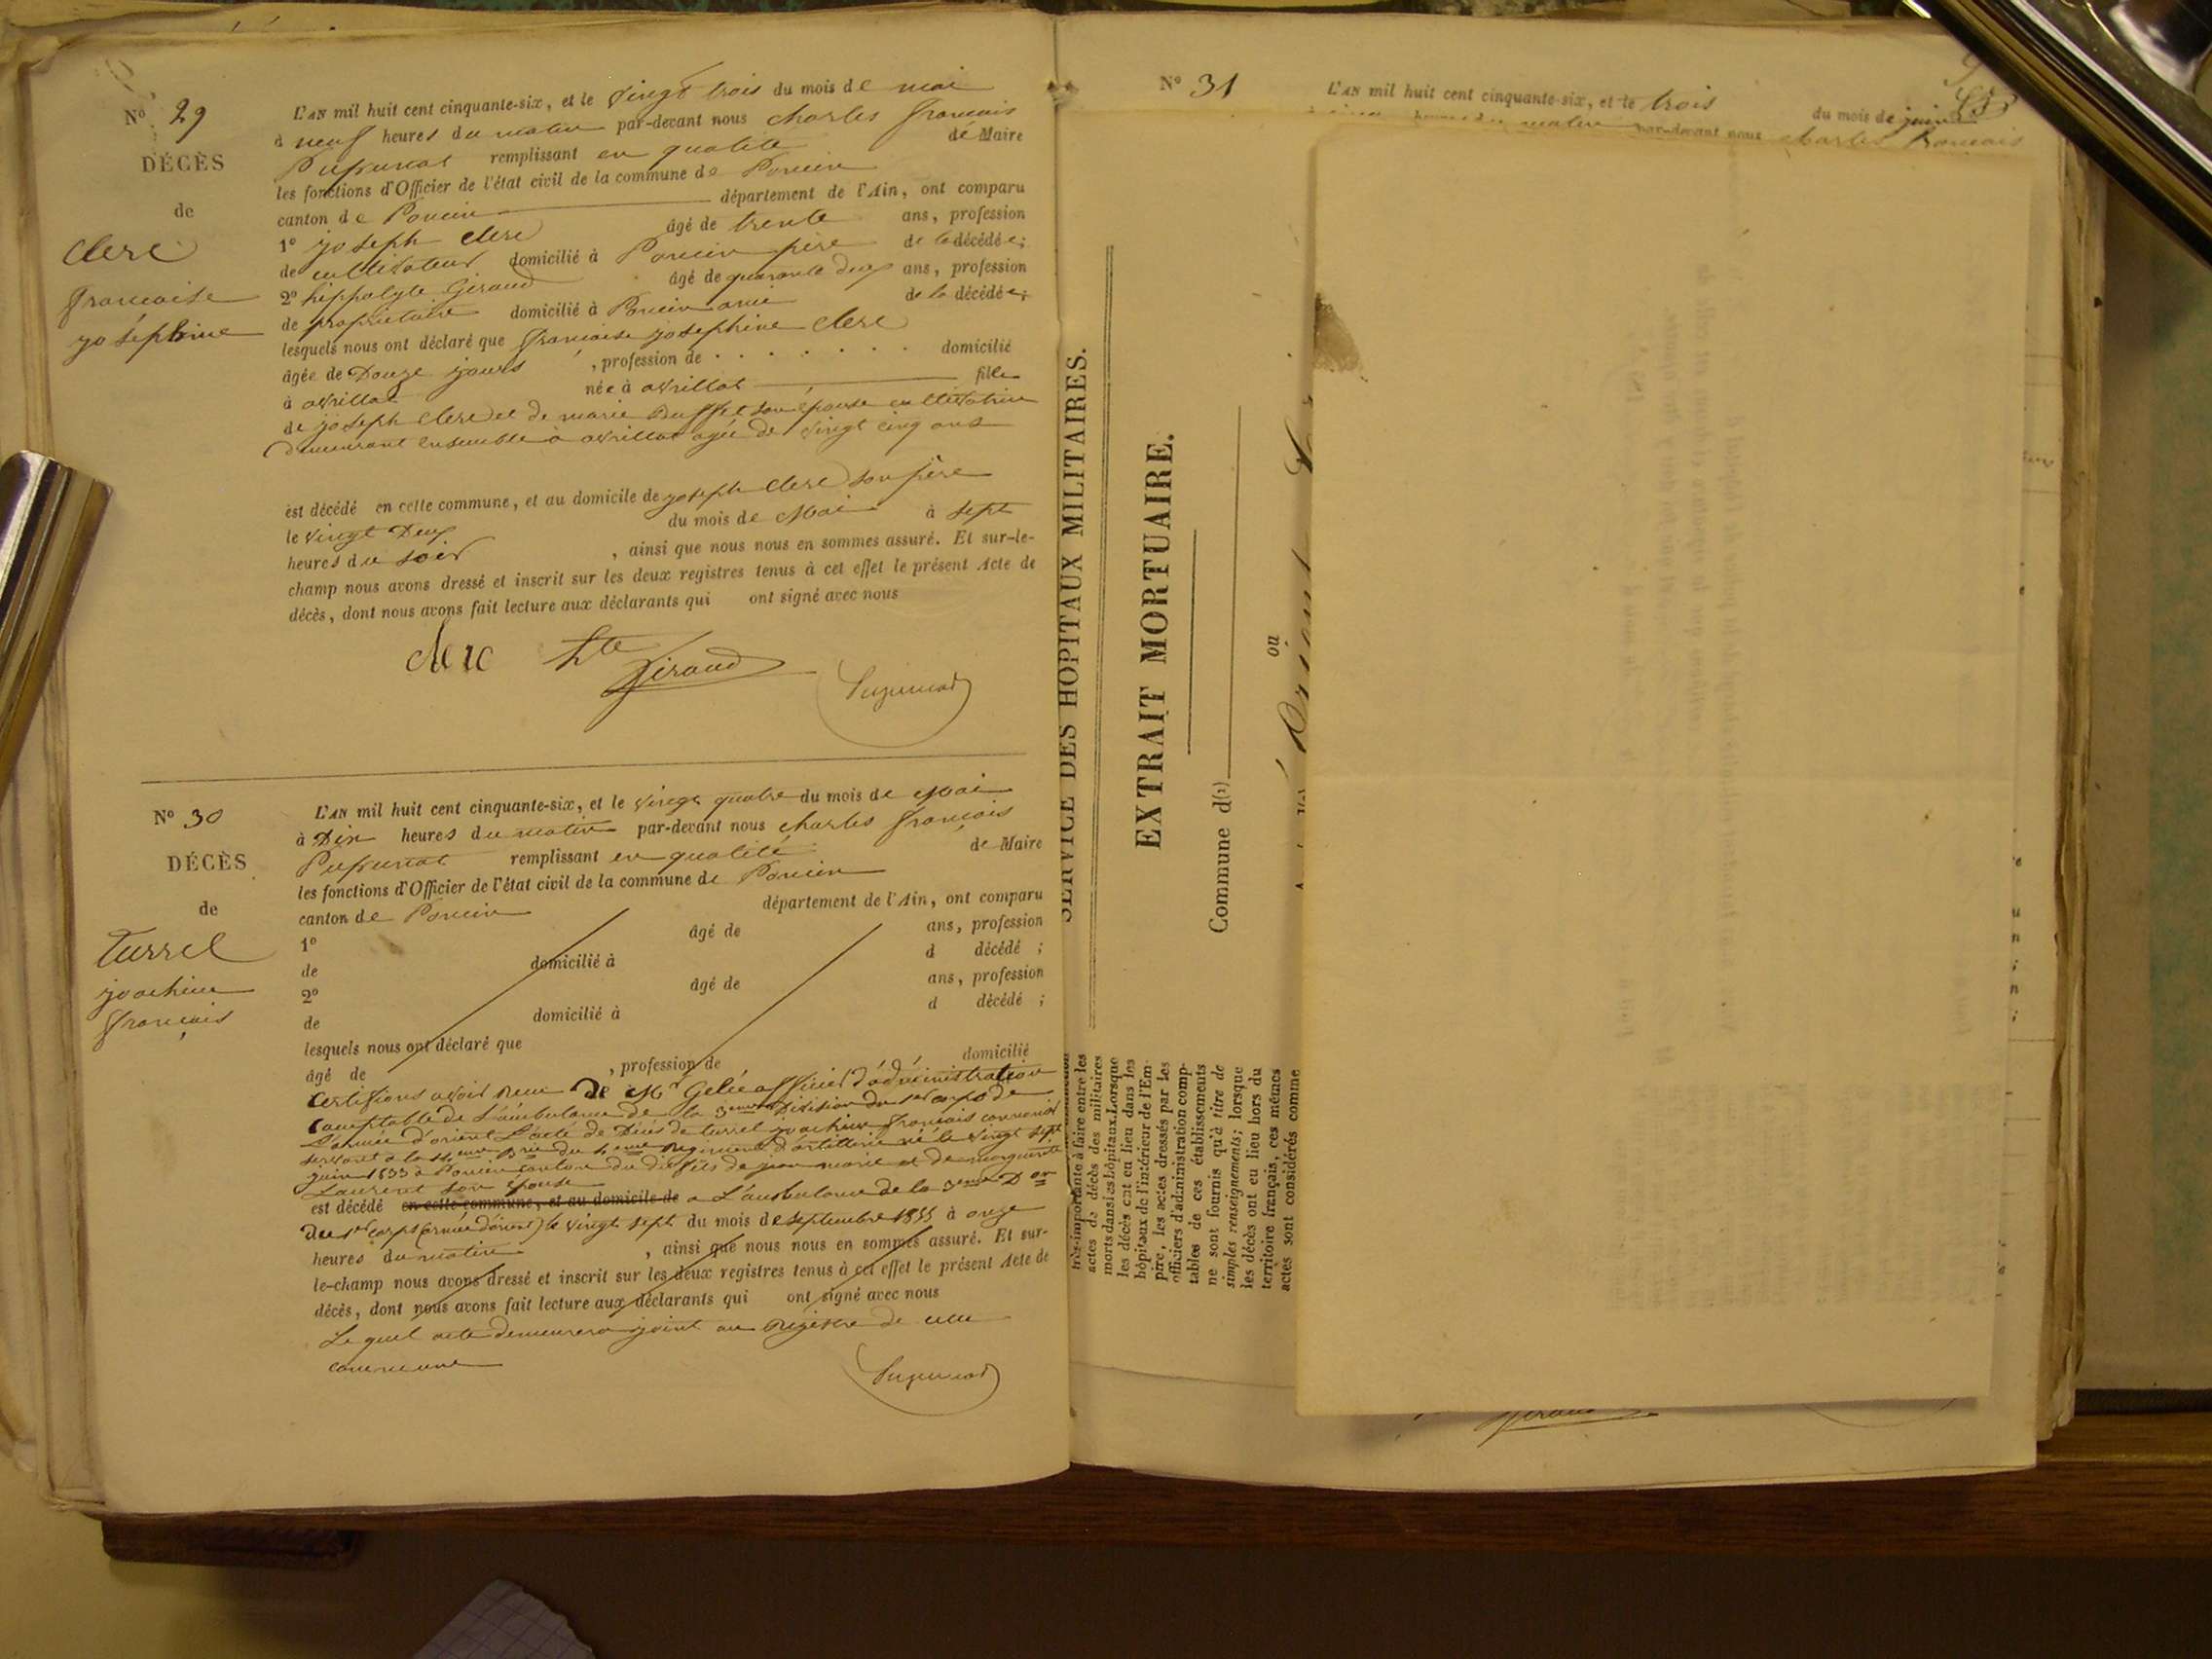 N° 29
DÉCÈS
de
Clerc
françoise
joséphine
L'AN mil huit cent cinquante-six, et le vingt trois du mois de mai
à neuf heures du matin par-devant nous charles françois
remplissant en qualité de Maire
les fonctions d'Officier de l'état civil de la commune de Poncin
canton de Poncin département de l'Ain, ont comparu
1° joseph clerc âgé de trente ans, profession
de cultivateur domicilié à Poncin père de la décédée;
2° hippolyte Giraud âgé de quarante deux ans, profession
de propriétaire domicilié à Poncin ami de la décédée;
lesquels nous ont déclaré que françoise joséphine clerc
âgée de Douze jours , profession de . . . . . . . . domicilié
à avrillat née à avrillat fille
de joseph Clerc et de marie Buffet son épouse cultivatrice
Demeurant ensemble à avrillat agée de vingt cinq ans
est décédé en cette commune, et au domicile de joseph clerc son père
le vingt Deux du mois de Mai à sept
heures du soir , ainsi que nous nous en sommes assuré. Et sur-le-
champ nous avons dressé et inscrit sur les deux registres tenus à cet effet le présent Acte de
décès, dont nous avons fait lecture aux déclarants qui ont signé avec nous
clerc hte Giraud
N° 30
DÉCÈS
de
Turrel
joachim
françois
L'AN mil huit cent cinquante-six, et le vingt quatre du mois de Mai
à Dix heures du matin par-devant nous charles françois
remplissant en qualité de Maire
les fonctions d'Officier de l'état civil de la commune de Poncin
canton de Poncin département de l'Ain, ont comparu
1° âgé de ans, profession
de domicilié à d décédé ;
2° âgé de ans, profession
de domicilié à d décédé ;
lesquels nous ont déclaré que
âgé de , profession de domicilié
Certifions avoir reçu de Mr Gelée officier d'administration
Comptable de l'ambulance de la 3eme Division du 1er corps de
l'armée d'orient l'acte de Décès de turrel joachim françois canonier
servant à la 11eme Brie du 4eme régiment d'artillerie né le vingt sept
juin 1833 à Poncin canton du dit fils de jean marie et de marguerite
Laurent son épouse
est décédé en cette commune, et au domicile de a L'ambulance de la 3eme Don
du 1er corps (armée d'orient) le vingt sept du mois de septembre 1855 à onze
heures du matin , ainsi que nous nous en sommes assuré. Et sur-
le-champ nous avons dressé et inscrit sur les deux registres tenus à cet effet le présent Acte de
décès, dont nous avons fait lecture aux déclarants qui ont signé avec nous
Le quel acte demeurera joint au Régistre de cette
commune
N° 31
L'AN mil huit cent cinquante-six, et le trois du mois de juin
heures du matin par-devant nous charles françois
SERVICE DES HOPITAUX MILITAIRES.
EXTRAIT MORTUAIRE.
Commune d(1)
ou
très-importante à faire entre les
actes de décès des militaires
morts dans les hôpitaux. Lorsque
les décès ont eu lieu dans les
hôpitaux de l'intérieur de l'Em-
pire, les actes dressés par les
officiers d'administration comp-
tables de ces établissements
ne sont fournis qu'à titre de
simples renseignements; lorsque
les décès ont eu lieu hors du
territoire français, ces mêmes
actes sont considérés comme